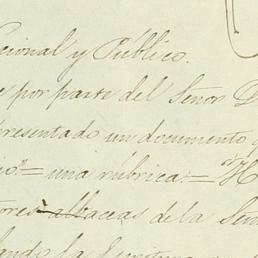 cional y Público.
por parte del Señor D
presentado un documento q
io"= una rúbrica.= "H
tores albaceas de la Señ